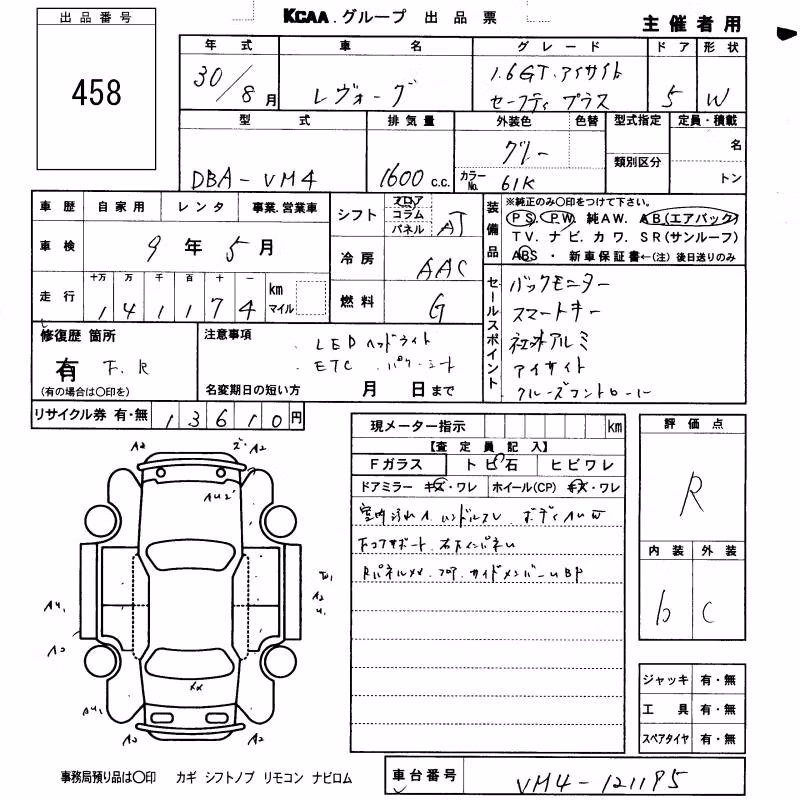 出品番号
458
KCAA.グループ 出品票
主催者用
年式 車名 グレード ドア 形状
30/8月 レヴォーグ 1.6GT.アイサイト
セーフティプラス 5 W
型式 排気量 外装色 色替 型式指定 定員・積載
DBA-VM4 1600 c.c. グリー
カラーNo. 61K
類別区分
名
トン
車歴 自家用 レンタ 事業.営業車
車検 9年 5月
走行 十万 万 千 百 十 一
141174 km マイル
シフト フロア コラム パネル AT
冷房 AAC
燃料 G
装備品
※純正のみ〇印をつけて下さい。
PS. PW. 純AW. AB(エアバック)
TV. ナビ. カワ. SR(サンルーフ)
ABS ・ 新車保証書←(注) 後日送りのみ
セールスポイント
バックモニター
スマートキー
社外アルミ
アイサイト
クルーズコントロール
修復歴 箇所
有 F.R
(有の場合は〇印を)
注意事項
.LEDヘッドライト
.ETC .パワーシート
名変期日の短い方 月 日まで
リサイクル券 有・無 13610円
現メーター指示 km
【査定員記入】
Fガラス トビ石 ヒビワレ
ドアミラー キズ・ワレ ホイール(CP) キズ・ワレ
室内汚れA.ハンドルスレ. ボディAUW
Rパネル
サイドメンバー
評価点
R
内装 外装
b C
A2 A2
AU2
AU1
A2
A2
AU1
A2 A2
ジャッキ 有・無
工具 有・無
スペアタイヤ 有・無
事務局預り品は〇印 カギ シフトノブ リモコン ナビロム
車台番号 VM4-121195